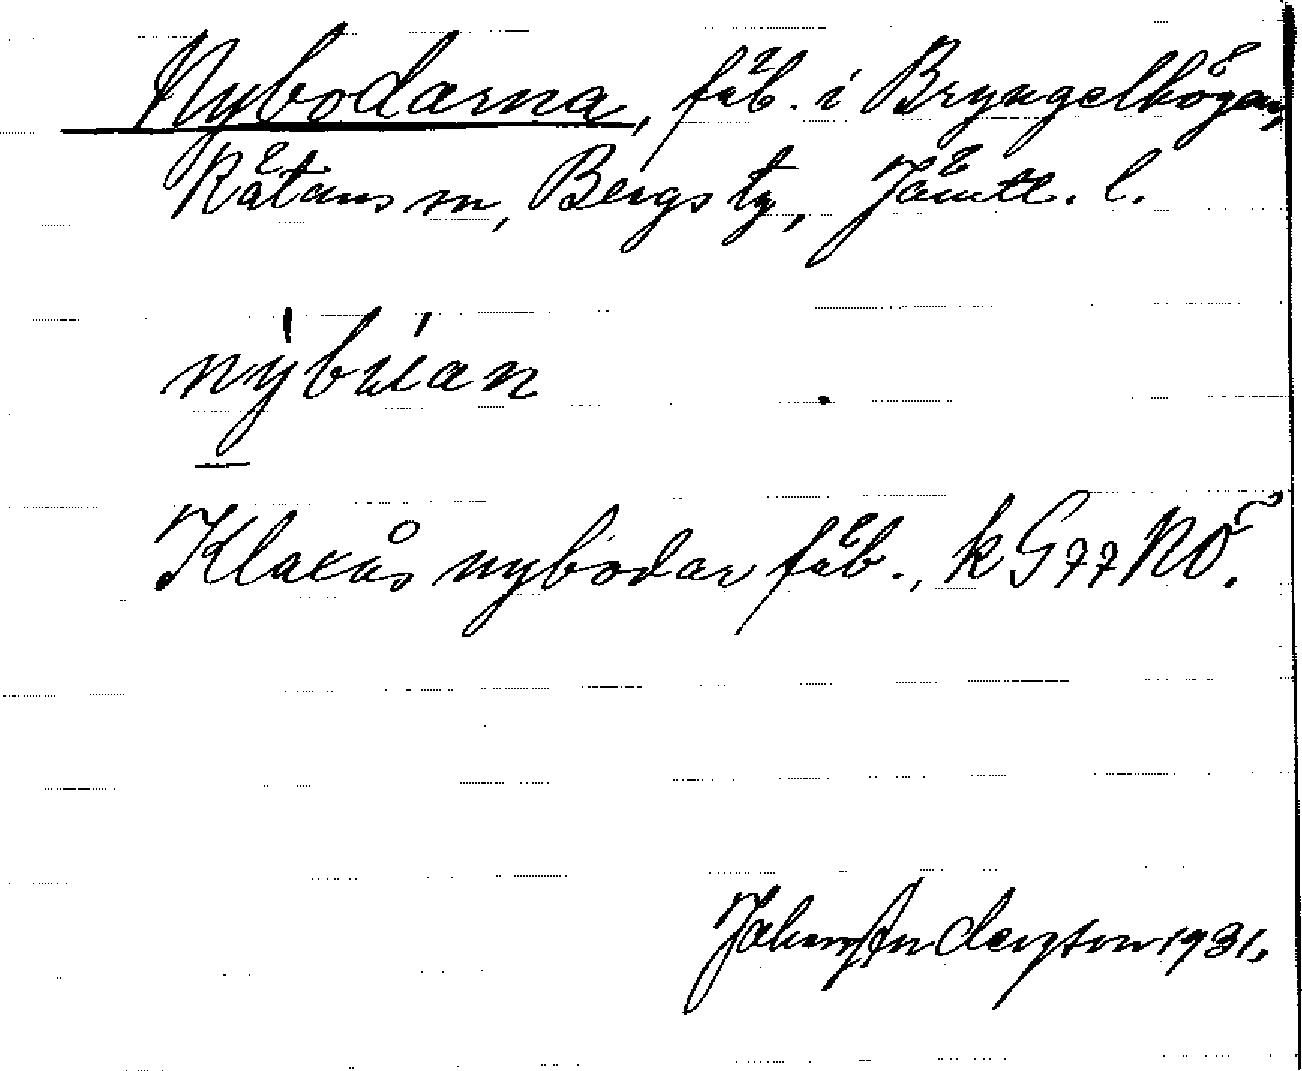 Nybodarna, fäb. i Bryngelhögen,
Rätans sn, Bergs tg, Jämtl. l.
nybúan
Klaxås nybodar fäb., k G77 NÖ.
Andersson 1931.